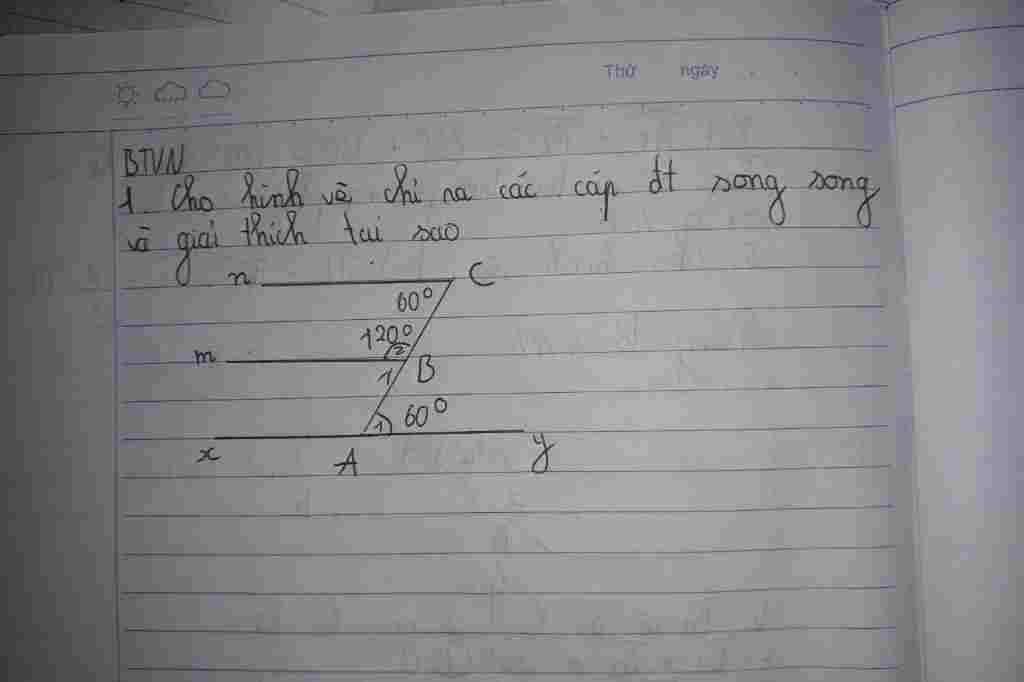 Thứ ngày
BTVN
1. Cho hình vẽ chỉ ra các cặp đt song song
và giải thích tại sao
n C
60°
120°
2
m
1 B
1 60°
x A y